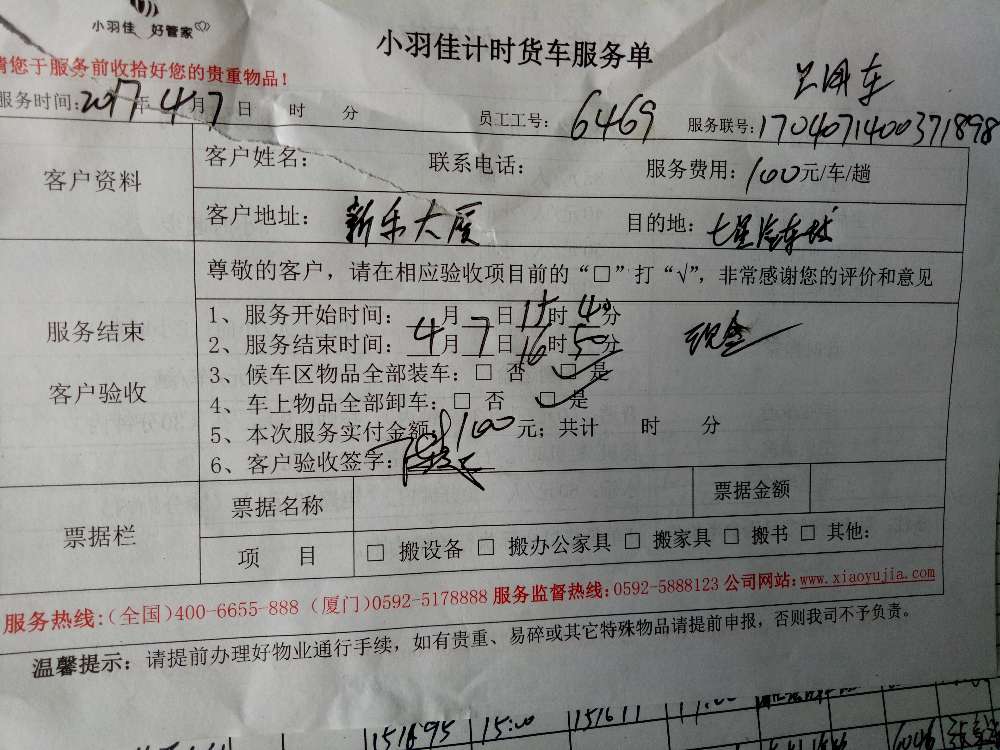 小羽佳 好管家
小羽佳计时货车服务单
请您于服务前收拾好您的贵重物品!
服务时间:2017年4月7日 时 分 员工工号: 6469 服务联号:1704071400371898
客户资料
客户姓名: 联系电话: 服务费用:100元/车/趟
客户地址: 新乐大厦 目的地:
尊敬的客户，请在相应验收项目前的“□”打“√”，非常感谢您的评价和意见
服务结束
客户验收
1、服务开始时间: 月 日 时40分
2、服务结束时间: 4月7日16时50分 现金
3、候车区物品全部装车:□ 否 □ 是
4、车上物品全部卸车:□ 否 □ 是
5、本次服务实付金额:100元; 共计 时 分
6、客户验收签字:
票据栏
票据名称 票据金额
项 目 □ 搬设备 □ 搬办公家具 □ 搬家具 □ 搬书 □ 其他:
服务热线:(全国)400-6655-888 (厦门)0592-5178888 服务监督热线:0592-5888123 公司网站:www.xiaoyujia.com
温馨提示: 请提前办理好物业通行手续，如有贵重、易碎或其它特殊物品请提前申报，否则我司不予负责。
151895 15:00 151611